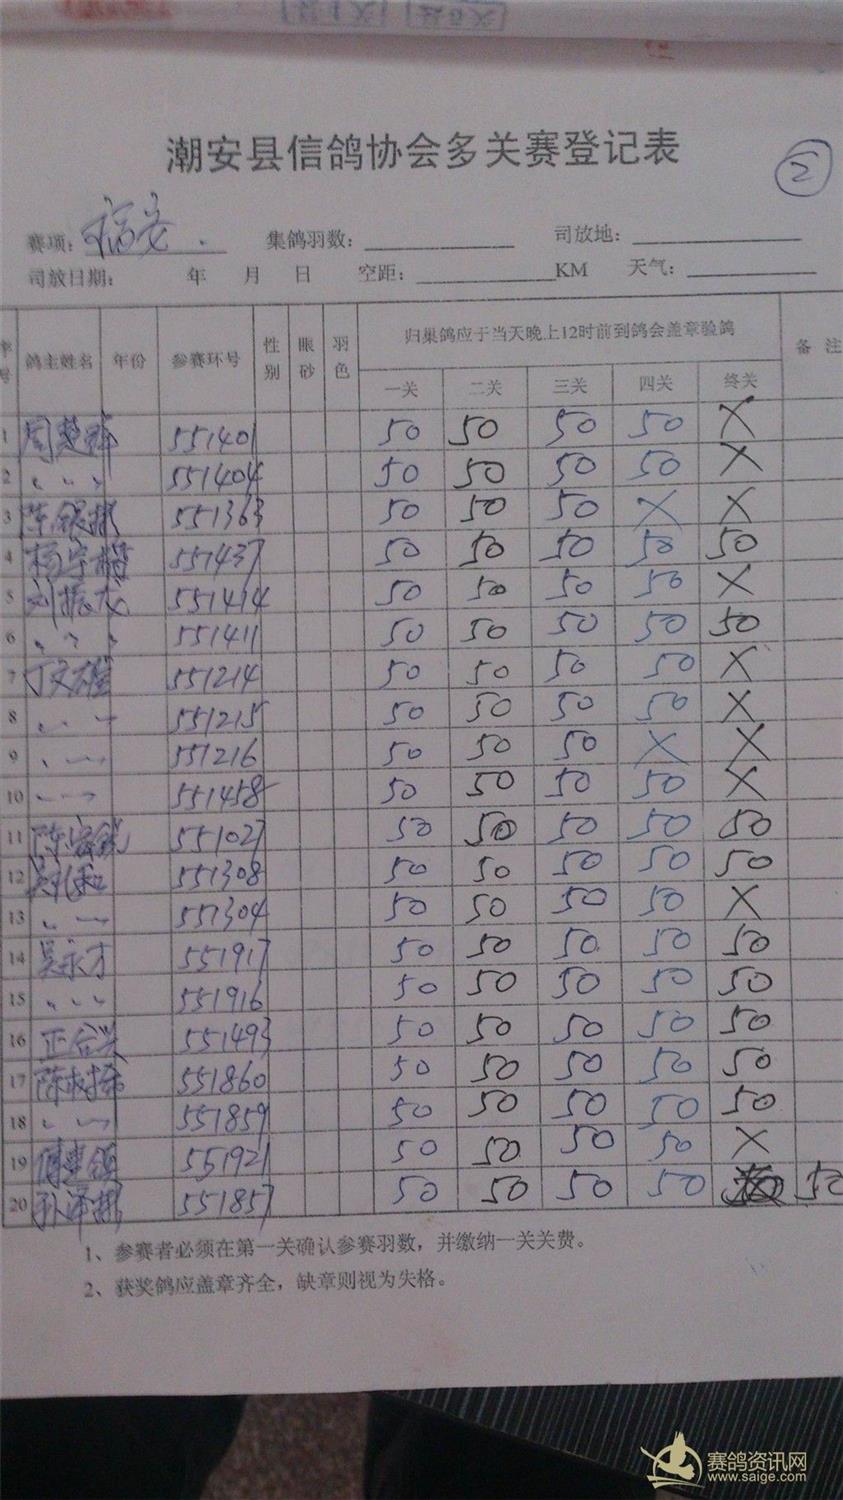 潮安县信鸽协会多关赛登记表
②
赛项: 福安. 集鸽羽数: 司放地:
司放日期: 年 月 日 空距: KM 天气:
序号 鸽主姓名 年份 参赛环号 性别 眼砂 羽色 归巢鸽应于当天晚上12时前到鸽会盖章验鸽 备 注
一关 二关 三关 四关 终关
1 周楚 551401 50 50 50 50 X
2 〃 〃 〃 551404 50 50 50 50 X
3 陈银彬 551363 50 50 50 X X
4 杨宇 551437 50 50 50 50 50
5 刘振龙 551414 50 50 50 50 X
6 〃 〃 〃 551411 50 50 50 50 50
7 丁文雄 551214 50 50 50 50 X
8 〃 〃 551215 50 50 50 50 X
9 〃 〃 551216 50 50 50 X X
10 〃 〃 551458 50 50 50 50 X
11 陈 551027 50 50 50 50 50
12 551308 50 50 50 50 50
13 〃 〃 551304 50 50 50 50 X
14 吴永才 551917 50 50 50 50 50
15 〃 〃 〃 551916 50 50 50 50 50
16 正合兴 551493 50 50 50 50 50
17 陈 551860 50 50 50 50 50
18 〃 〃 551859 50 50 50 50 50
19 551921 50 50 50 50 X
20 孙泽彬 551857 50 50 50 50 50
1、参赛者必须在第一关确认参赛羽数，并缴纳一关关费。
2、获奖鸽应盖章齐全，缺章则视为失格。
赛鸽资讯网
www.saige.com